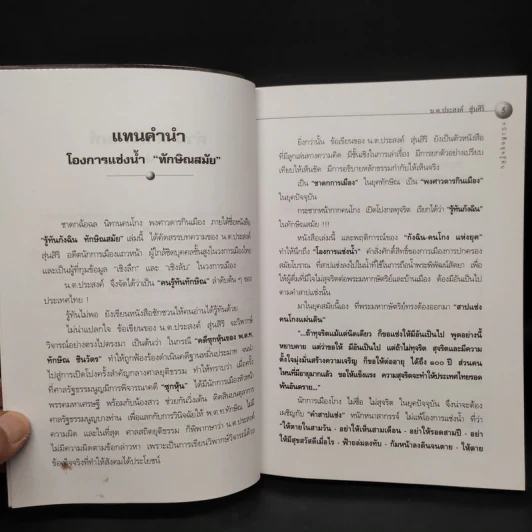 แทนคำนำ
โองการแช่งน้ำ "ทักษิณสมัย"
ชาตกฉ้อฉล นิทานคนโกง พงศาวดารกินเมือง ภายใต้ชื่อหนังสือ
"รู้ทันกังฉิน ทักษิณสมัย" เล่มนี้ ได้คัดสรรบทความของ น.ต.ประสงค์
สุ่นศิริ อดีตนักการเมืองแถวหน้า ผู้ใกล้ชิดบุคคลชั้นสูงในวงการเมืองไทย
และเป็นผู้ที่กุมข้อมูล "เชิงลึก" และ "เชิงลับ" ในวงการเมือง
น.ต.ประสงค์ จึงจัดได้ว่าเป็น "คนรู้ทันทักษิณ" ลำดับต้น ๆ ของ
ประเทศไทย !
รู้ทันไม่พอ ยังเขียนหนังสือชักชวนให้คนอ่านได้รู้ทันด้วย
ไม่น่าแปลกใจ ข้อเขียนของ น.ต.ประสงค์ สุ่นศิริ จะวิพากษ์
วิจารณ์อย่างตรงไปตรงมา เป็นต้นว่า ในกรณี "คดีซุกหุ้นของ พ.ต.ท.
ทักษิณ ชินวัตร" ทำให้ถูกฟ้องร้องดำเนินคดีฐานหมิ่นประมาท จนนำ
ไปสู่การเปิดโปงครั้งสำคัญกลางศาลยุติธรรม ทำให้ทราบว่า เมื่อครั้ง
ที่ศาลรัฐธรรมนูญมีการพิจารณาคดี "ซุกหุ้น" ได้มีนักการเมืองหัวหน้า
พรรคมหาเศรษฐี พร้อมกับน้องสาว ช่วยกันวิ่งเต้น ติดสินบนตุลาการ
ศาลรัฐธรรมนูญบางท่าน เพื่อแลกกับการวินิจฉัยให้ พ.ต.ท.ทักษิณ ไม่มี
ความผิด และในที่สุด ศาลสถิตยุติธรรม ก็พิพากษาว่า น.ต.ประสงค์
ไม่มีความผิดตามข้อกล่าวหา เพราะเป็นการเขียนวิพากษ์วิจารณ์ด้วย
ข้อเท็จจริงที่ทำให้สังคมได้ประโยชน์
น.ต.ประสงค์ สุ่นศิริ
5
ยิ่งกว่านั้น ข้อเขียนของ น.ต.ประสงค์ สุ่นศิริ ยังเป็นตัวหนังสือ
ที่มีลูกเล่นทางความคิด มีชั้นเชิงในการเล่าเรื่อง มีการยกตัวอย่างเปรียบ
เทียบให้เห็นชัด มีการอธิบายหลักธรรมกำกับให้เห็นจริง
เป็น "ชาดกการเมือง" ในยุคทักษิณ เป็น "พงศาวดารกินเมือง"
ในยุคปัจจุบัน
กระชากหน้ากากคนโกง เปิดโปงกลทุจริต เรียกได้ว่า "รู้ทันกังฉิน"
ในทักษิณสมัย !!!
หนังสือเล่มนี้ และพฤติการณ์ของ "กังฉิน-คนโกง แห่งยุค"
ทำให้นึกถึง "โองการแช่งน้ำ" คำศักดิ์สิทธิ์ของการเมืองการปกครอง
สมัยโบราณ ที่สาปแช่งลงไปในน้ำที่ใช้ในการถือน้ำพระพิพัฒน์สัตยา เพื่อ
ให้ผู้ดื่มที่ไม่ซื่อสัตย์สุจริตต่อพระมหากษัตริย์และบ้านเมือง ต้องมีอันเป็นไป
ตามคำสาปแช่งนั้น
มาในยุคสมัยนี้เอง ที่พระมหากษัตริย์ทรงต้องออกมา "สาปแช่ง
คนโกงแผ่นดิน"
"...ถ้าทุจริตแม้แต่นิดเดียว ก็ขอแช่งให้มีอันเป็นไป พูดอย่างนี้
หยาบคาย แต่ว่าขอให้ มีอันเป็นไป แต่ถ้าไม่ทุจริต สุจริตและมีความ
ตั้งใจมุ่งมั่นสร้างความเจริญ ก็ขอให้ต่ออายุ ได้ถึง ๑๐๐ ปี ส่วนคน
ไหนที่มีอายุมากแล้ว ขอให้แข็งแรง ความสุจริตจะทำให้ประเทศไทยรอด
พ้นอันตราย..."
นักการเมืองโกง ไม่ซื่อ ไม่สุจริต ในยุคปัจจุบัน จึงน่าจะต้อง
เผชิญกับ "คำสาปแช่ง" หนักหนาสาหรรจ์ ไม่แพ้โองการแช่งน้ำ ที่ว่า
"ให้ตายในสามวัน - อย่าให้เห็นสามเดือน - อย่าให้รอดสามปี - อย่า
ให้มีสุขสวัสดีเมื่อไร - ฟ้าถล่มลงทับ - ก้มหน้าลงดินจนตาย - ให้ตาย